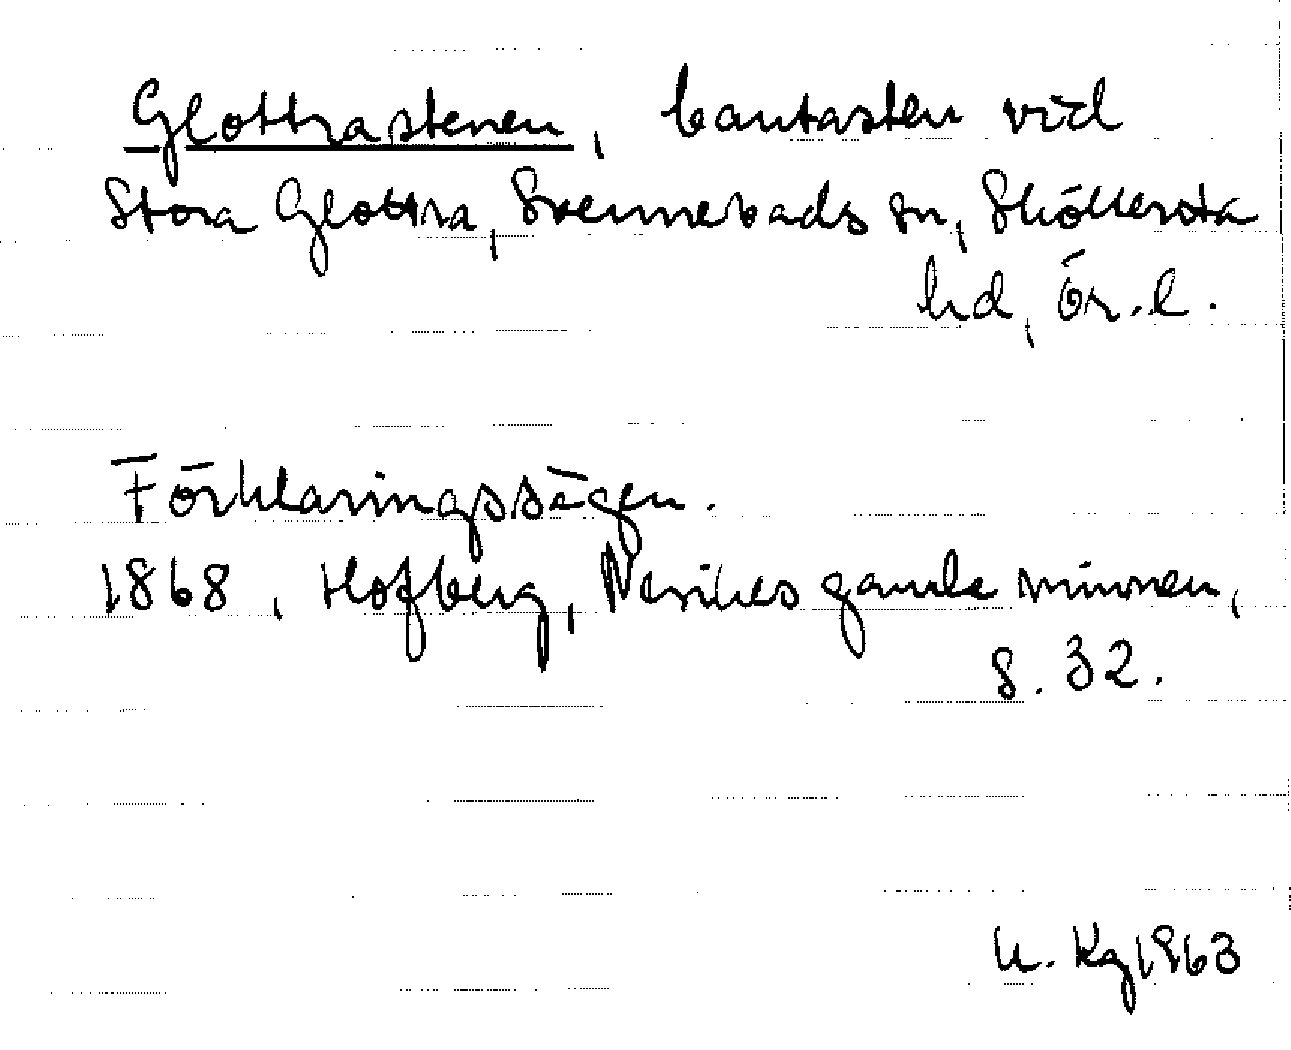 Glottrastenen, bautasten vid
Stora Glottra, Svennevads sn, Sköllersta
hd, Ör. l.
Förklaringssägen.
1868, Hofberg, Nerikes gamla minnen,
s. 32.
U. Kg 1963